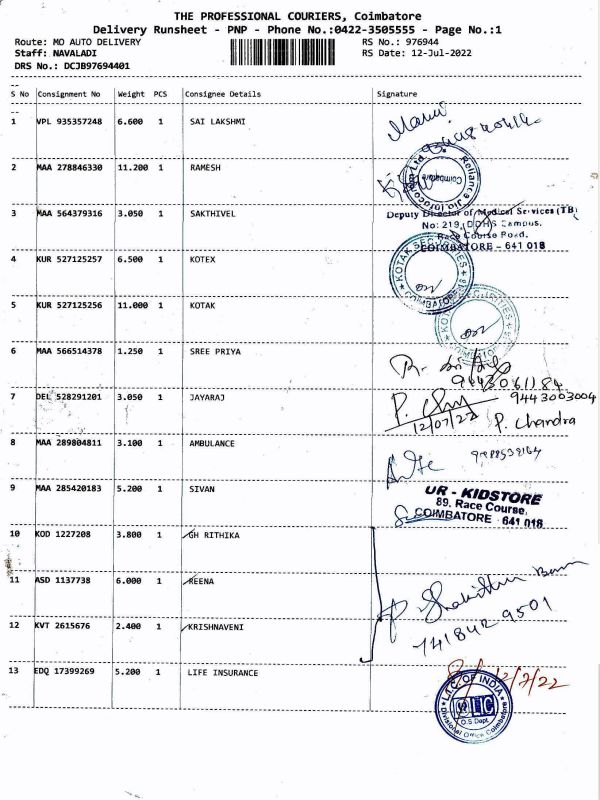 THE PROFESSIONAL COURIERS, Coimbatore
Delivery Runsheet - PNP - Phone No.:0422-3505555 - Page No.:1
Route: MO AUTO DELIVERY RS No.: 976944
Staff: NAVALADI RS Date: 12-Jul-2022
DRS No.: DCJB97694401
S No Consignment No Weight PCS Consignee Details Signature
1 VPL 935357248 6.600 1 SAI LAKSHMI
2 MAA 278846330 11.200 1 RAMESH
Reliance Jio Infocomm Ltd. Coimbatore
3 MAA 564379316 3.050 1 SAKTHIVEL
Deputy Director of Medical Services (TB)
No: 219, DDHS Campus,
Race Course Road,
COIMBATORE - 641 018
4 KUR 527125257 6.500 1 KOTEX
KOTAK SECURITIES COIMBATORE
5 KUR 527125256 11.000 1 KOTAK
KOTAK SECURITIES COIMBATORE
6 MAA 566514378 1.250 1 SREE PRIYA
9443061184
7 DEL 528291201 3.050 1 JAYARAJ
9443003004
12/07/22 P. Chandra
8 MAA 289804811 3.100 1 AMBULANCE
9 MAA 285420183 5.200 1 SIVAN
UR - KIDSTORE
89, Race Course,
COIMBATORE - 641 018
10 KOD 1227208 3.800 1 GH RITHIKA
11 ASD 1137738 6.000 1 REENA
12 KVT 2615676 2.400 1 KRISHNAVENI
741842 9501
13 EDQ 17399269 5.200 1 LIFE INSURANCE
12/7/22
L.I.C. OF INDIA
LIC
O.S. Dept.
Divisional Office Coimbatore